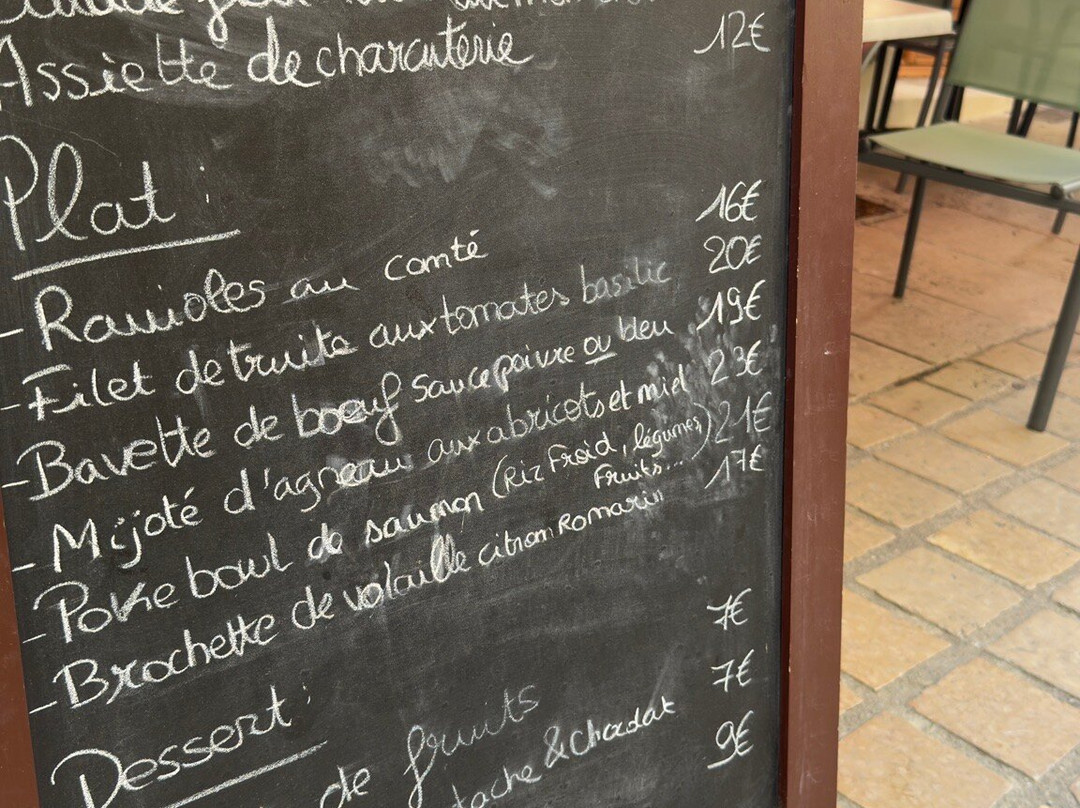 Assiette de charcuterie 12€
Plat :
- Ravioles au comté 16€
- Filet de truite aux tomates basilic 20€
- Bavette de boeuf Sauce poivre ou bleu 19€
- Mijoté d'agneau aux abricots et miel 23€
- Poke bowl de saumon (Riz Froid, légumes, 21€
Fruits...)
- Brochette de volaille citron Romarin 17€
Dessert :
7€
de fruits 7€
& Chocolat 9€